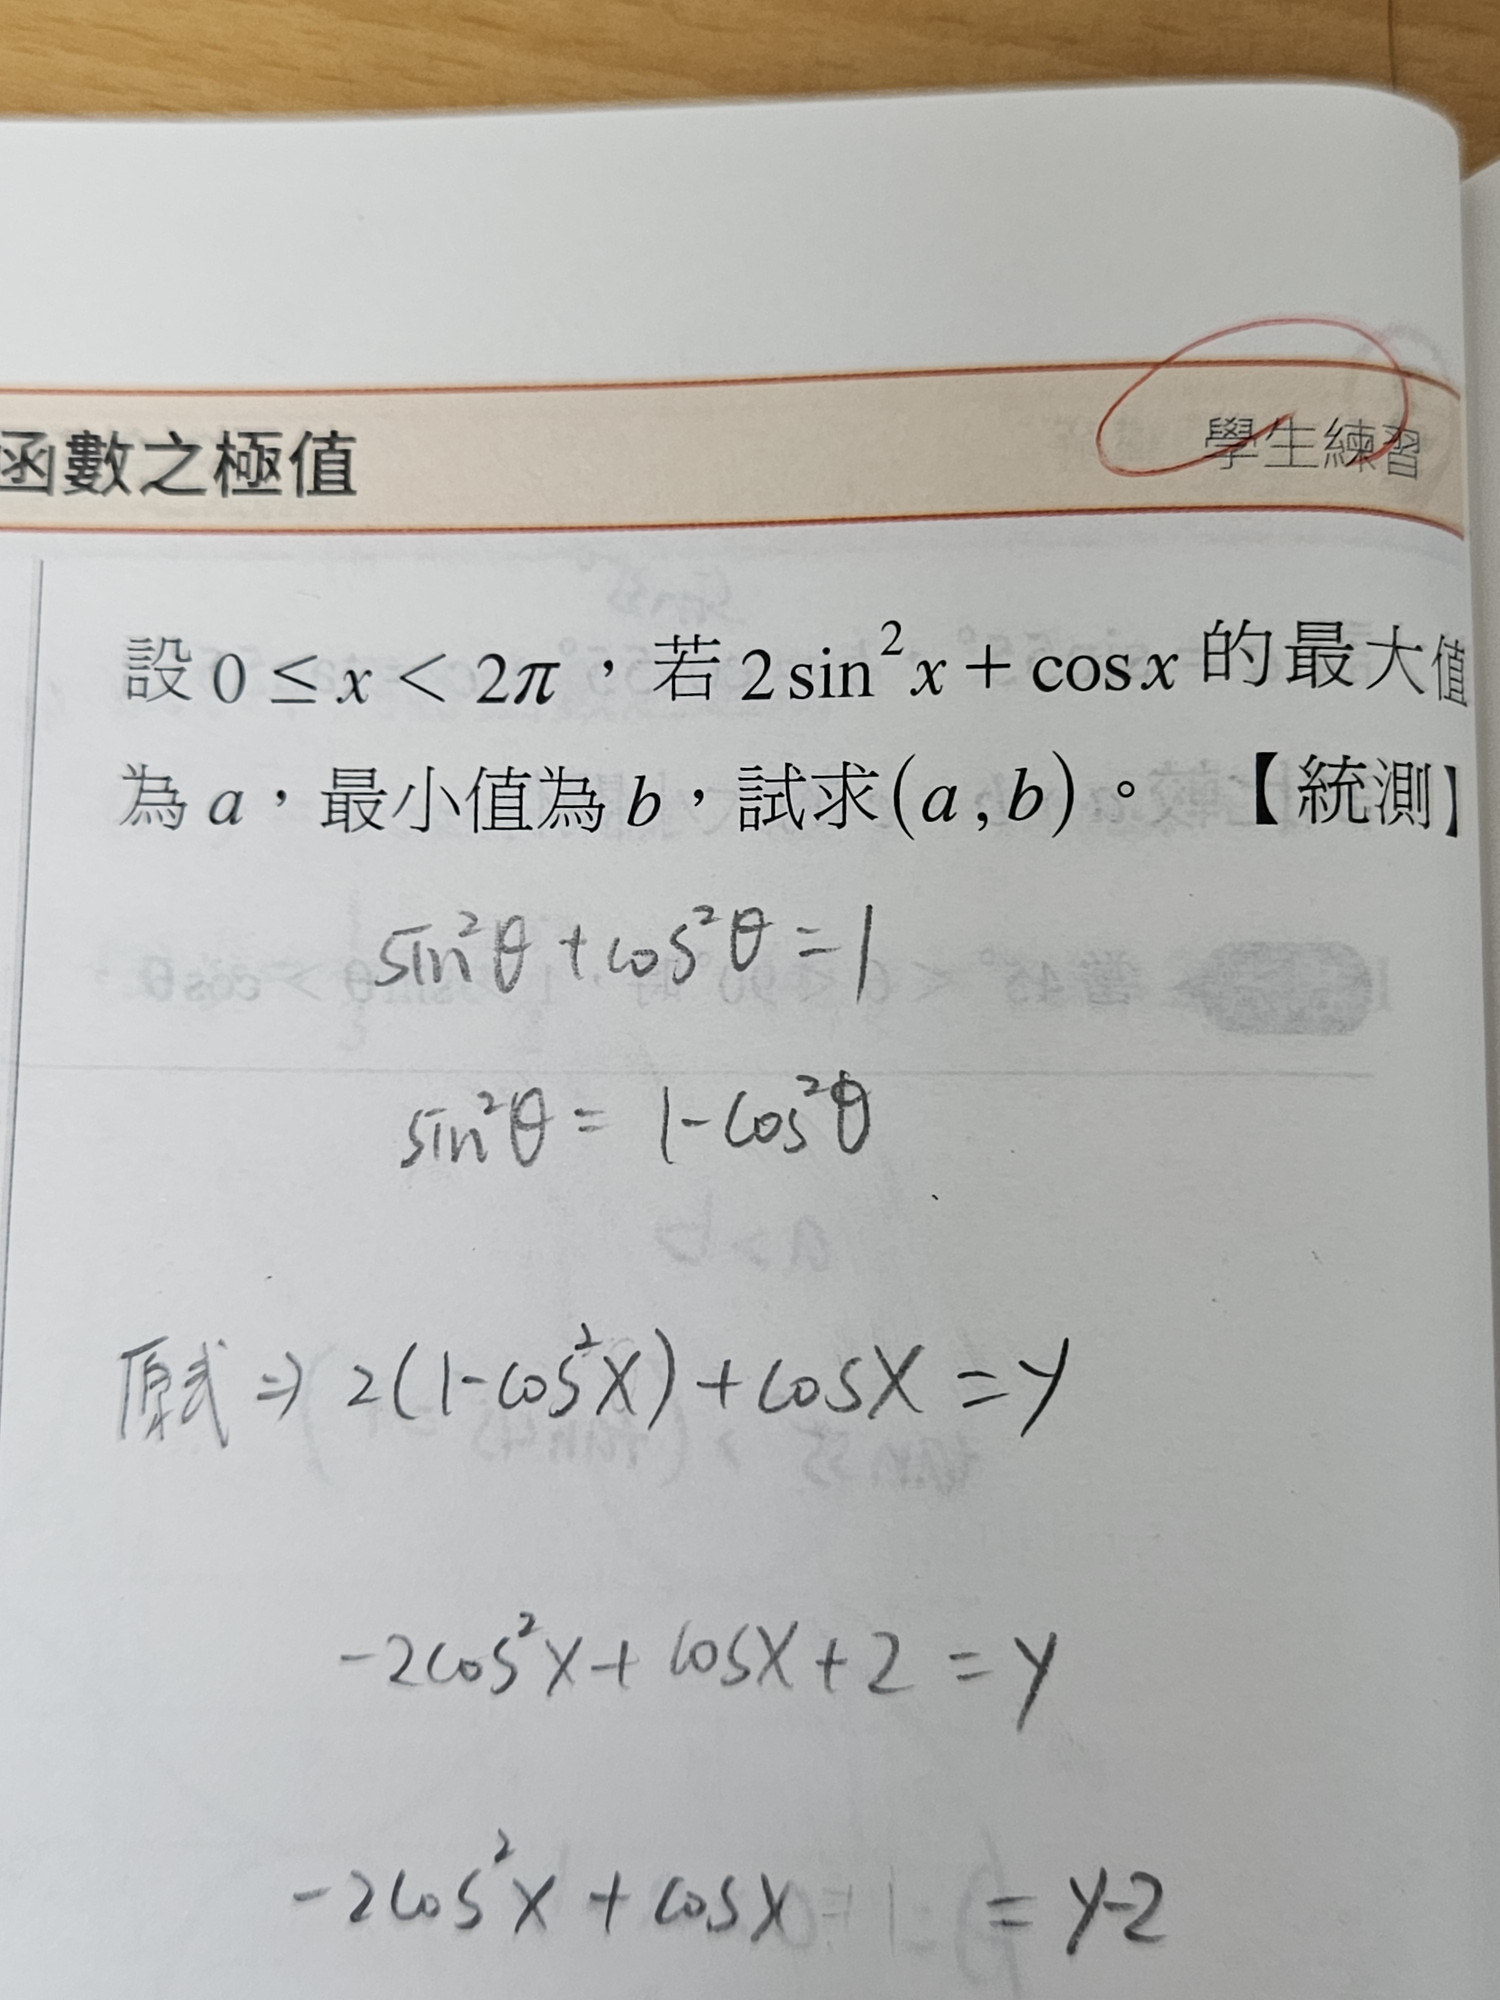 函數之極值
學生練習
設 0 ≤ x < 2π，若 2 sin² x + cos x 的最大值
為 a，最小值為 b，試求 (a , b)。【統測】
sin²θ + cos²θ = 1
sin²θ = 1 - cos²θ
原式 ⇒ 2(1-cos²X) + cosX = y
-2cos²X + cosX + 2 = y
-2cos²X + cosX = y-2